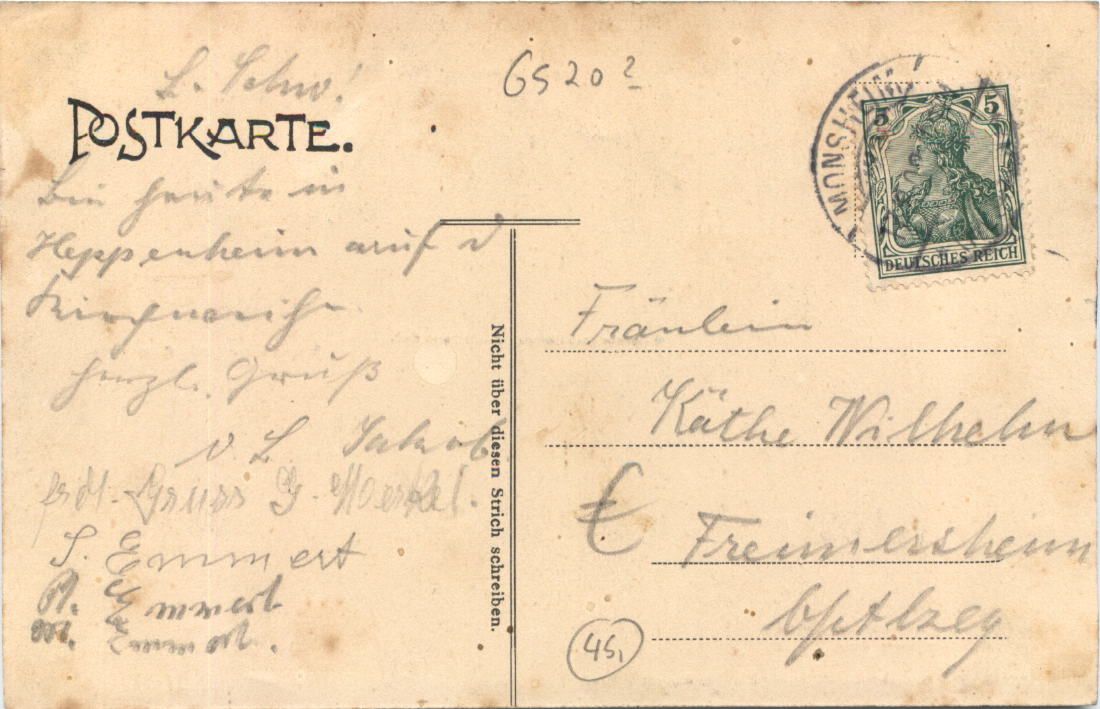 6520?
L. Schw!
POSTKARTE.
Bin heute in
Heppenheim auf d
Kirchweihe.
herzl. Gruß
v L Jakob
frdl. Gruss G.
J. Emmert
Emmert
M. Emmert.
Nicht über diesen Strich schreiben.
MONSHEIM
5 5
DEUTSCHES REICH
Fräulein
Käthe Wilhelm
Freimersheim
b/Alzey
45,